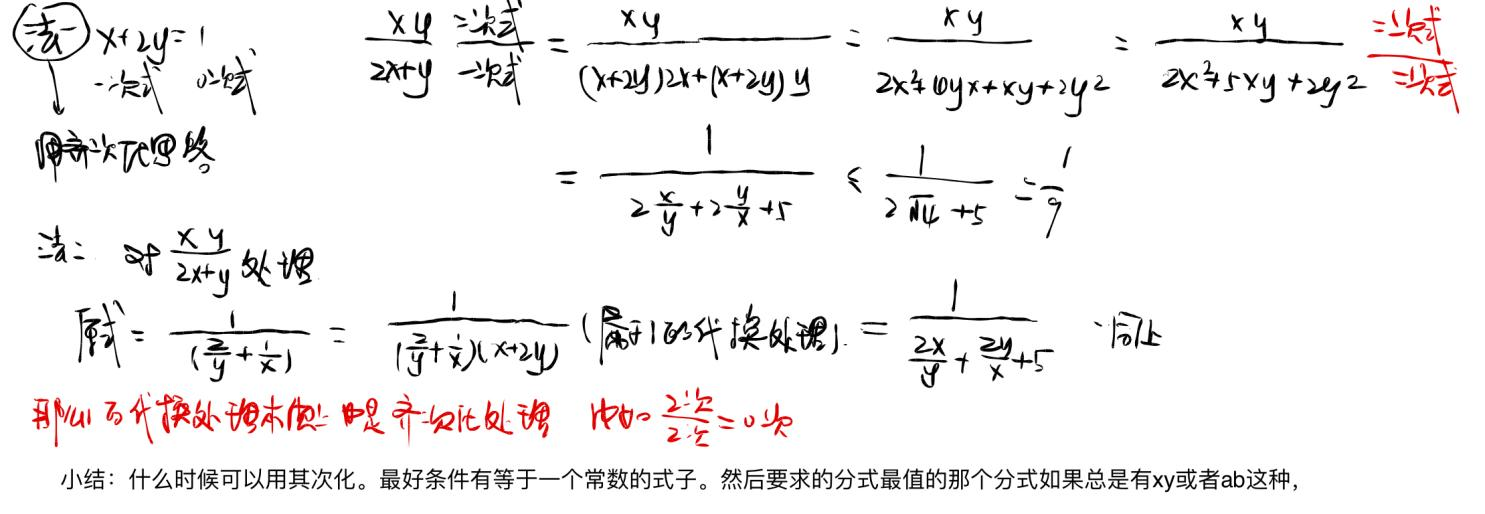 法一 x+2y=1 xy/(2x+y) 二次式/一次式 = xy/((x+2y)2x+(x+2y)y) = xy/(2x²+4yx+xy+2y²) = xy/(2x²+5xy+2y²) 二次式/二次式
一次式 0次式
用齐次化思路。
= 1/(2x/y+2y/x+5) ≤ 1/(2√4+5) = 1/9
法二 对 xy/(2x+y) 处理
原式 = 1/(2/y+1/x) = 1/((2/y+1/x)(x+2y)) (属于1的代换处理). = 1/(2x/y+2y/x+5) 、同上
那么1的代换处理本质上也是齐次化处理 比如 2次/2次=0次
小结：什么时候可以用其次化。最好条件有等于一个常数的式子。然后要求的分式最值的那个分式如果总是有xy或者ab这种，